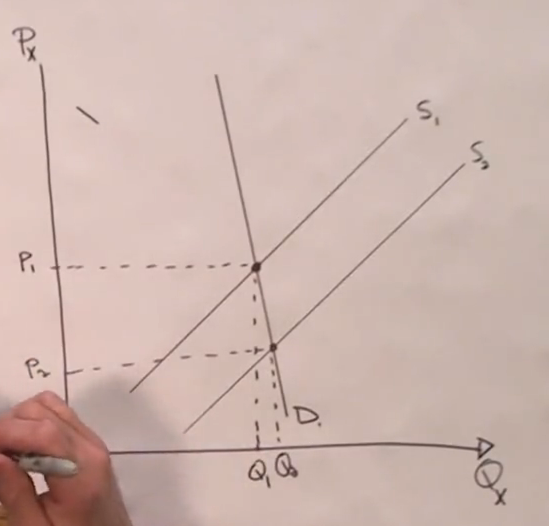 Px
S₁
S₂
P₁
P₂
D.
Q₁ Q₂
Qx